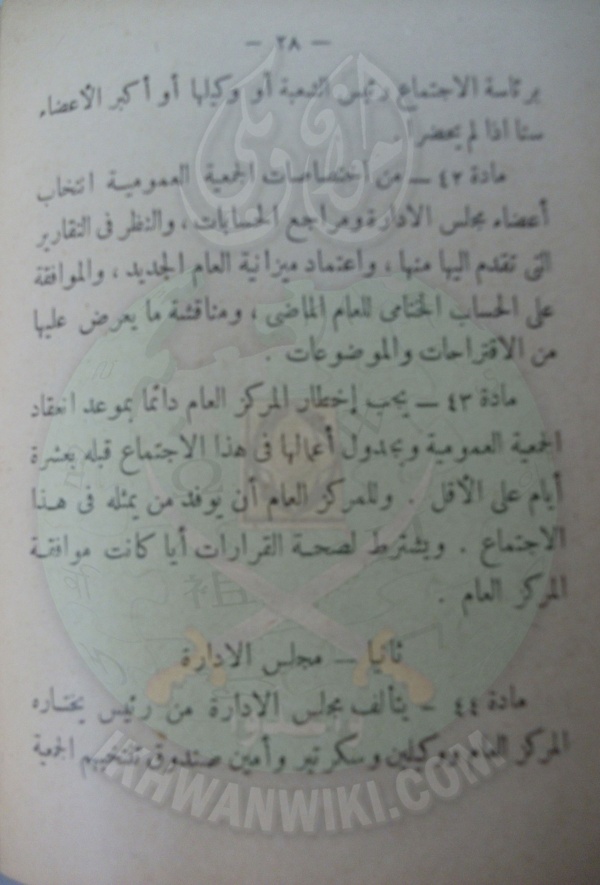 — ٢٨ —
برئاسة الاجتماع رئيس الشعبة أو وكيلها أو أكبر الأعضاء
سنا اذا لم يحضرا.
مادة ٤٢ — من اختصاصات الجمعية العمومية انتخاب
أعضاء مجلس الادارة ومراجع الحسابات ، والنظر فى التقارير
التى تقدم اليها منها ، واعتماد ميزانية العام الجديد ، والموافقة
على الحساب الختامى للعام الماضى ، ومناقشة ما يعرض عليها
من الاقتراحات والموضوعات .
مادة ٤٣ — يجب إخطار المركز العام دائما بموعد انعقاد
الجمعية العمومية وبجدول أعمالها فى هذا الاجتماع قبله بعشرة
أيام على الأقل . وللمركز العام أن يوفد من يمثله فى هذا
الاجتماع . ويشترط لصحة القرارات أيا كانت موافقة
المركز العام .
ثانيا — مجلس الادارة
مادة ٤٤ — يتألف مجلس الادارة من رئيس يختاره
المركز العام ووكيلين وسكرتير وأمين صندوق تنتخبهم الجمعية
إخوان ويكي
IKHWANWIKI.COM